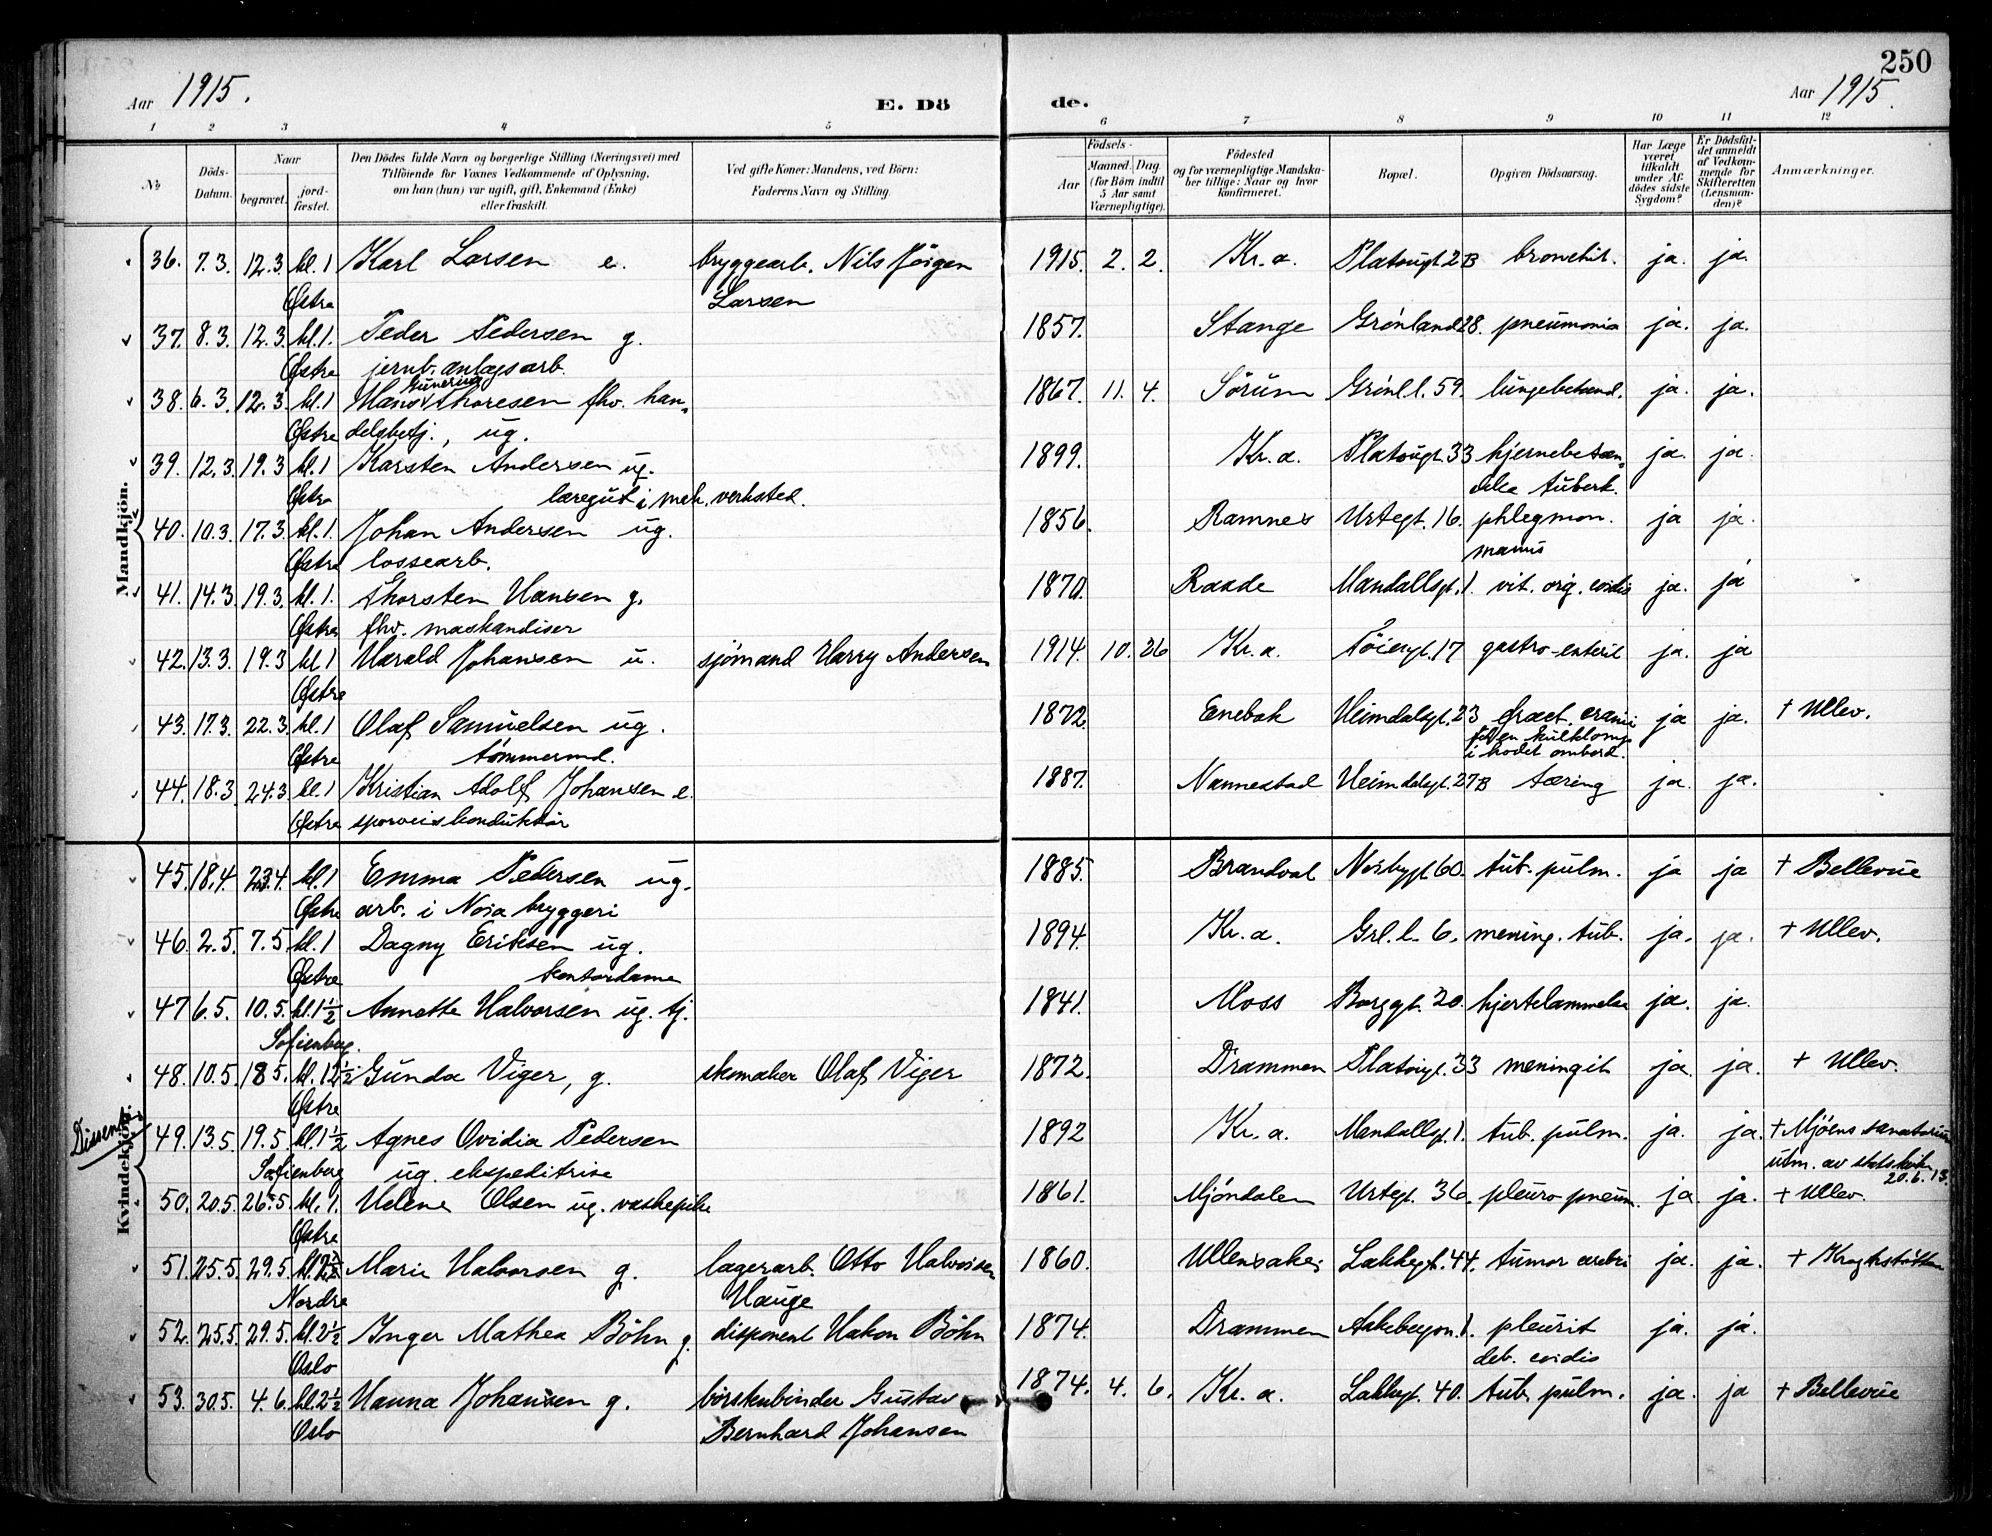 250
Aar 1915.
E. Dö
de.
Aar 1915.
1 2 3 4 5 6 7 8 9 10 11 12
№
Döds-Datum.
Naar
begravet.
jord-fæstet.
Den Dödes fulde Navn og borgerlige Stilling (Næringsvei) med
Tilföiende for Voxnes Vedkommende af Oplysning,
om han (hun) var ugift, gift, Enkemand (Enke)
eller fraskilt.
Ved gifte Koner: Mandens, ved Börn:
Faderens Navn og Stilling.
Födsels-
Aar
Maaned. Dag
(for Börn indtil
5 Aar samt
Værnepligtige).
Födested
og for værnepligtige Mandska-
ber tillige: Naar og hvor
konfirmeret.
Bopæl.
Opgiven Dödsaarsag.
Har Læge
været
tilkaldt
under Af-
dödes sidste
Sygdom?
Er Dödsfal-
det anmeldt
af Vedkom-
mende for
Skifteretten
(Lensman-
den)?
Anmærkninger.
Mandkjön.
36. 7.3. 12.3. kl. 1 Karl Larsen e. bryggearb. Nils Jörgen 1915. 2. 2. Kr.a. Platougt. 2B bronchit. ja. ja.
Østre Larsen
37. 8.3. 12.3. kl. 1. Peder Pedersen g. 1857. Stange Grönland 28. pneumonia ja. ja.
Østre jernb. anlægsarb.
Gunerius
38. 6.3. 12.3. kl. 1 Hans Thoresen fhv. han- 1867. 11. 4. Sörum Grönl.l. 59. lungebetænd. ja. ja.
Østre delsbetj., ug.
39. 12.3. 19.3. kl. 1 Karsten Andersen ug. 1899. Kr.a. Platougt. 33 hjernebetæn- ja. ja.
Østre læregut i mek. verksted. delse tuberk.
40. 10.3. 17.3. kl. 1. Johan Andersen ug. 1856. Ramnes Urtegt. 16. phlegmon. ja ja.
Østre lossearb. manus
41. 14.3. 19.3. kl. 1. Thorsten Hansen g. 1870. Raade Mandallsgt. 1. vit. org. cordis ja. ja
Østre fhv. maskandiser
42. 13.3. 19.3 kl 1 Harald Johansen u. sjömand Harry Andersen 1914. 10. 26 Kr.a. Töiengt. 17 gastro-enterit ja. ja
Østre
43. 17.3. 22.3. kl. 1 Olaf Samuelsen ug. 1872. Enebak Heimdalsgt. 23 fract. cranii ja ja. + Ullev.
Østre tömmermd. i hodet ombord.
44. 18.3 24.3 kl. 1 Kristian Adolf Johansen e. 1887. Nannestad Heimdalsgt. 27B tæring ja. ja.
Østre sporveiskonduktør
Kvindekjön.
45. 18.4 23.4. kl. 1 Emma Pedersen ug. 1885. Brandval Norbygt. 60. tub. pulm. ja ja + Bellevue
Østre arb. i Nora bryggeri
46. 2.5. 7.5. kl. 1 Dagny Eriksen ug. 1894. Kr.a. Grl.l. 6. mening. tub. ja. ja. + Ullev.
Østre kontordame
47 6.5. 10.5. kl. 1½ Annette Halvorsen ug. tj. 1841. Moss Borggt. 20. hjertelammelse ja. ja.
Sofienberg.
48. 10.5. 18.5. kl. 12½ Gunda Viger, g. skomaker Olaf Viger 1872. Drammen Platougt. 33 meningit ja. ja. + Ullev.
Østre
Dissenter
49. 13.5 19.5 kl. 1½ Agnes Ovidia Pedersen 1892 Kr.a. Mandallsgt. 1. tub. pulm. ja. ja. + Mjöens sanatorium
Sofienberg ug. ekspeditrise utm. av statskirk. 20.6.13.
50. 20.5. 26.5. kl. 1. Helene Olsen ug. vaskepike 1861. Mjöndalen Urtegt. 36. pleuropneum. ja ja. + Ullev.
Østre
51. 25.5. 29.5. kl. 2½ Marie Halvorsen g. lagerarb. Otto Halvorsen 1860. Ullensaker Lakkegt. 44. tumor cerebri ja. ja. + Kroghstötten
Nordre Hauge
52. 25.5. 29.5. kl. 2½ Inger Mathea Böhn g. disponent Hakon Böhn 1874. Drammen Aakebergvn. 1. pleurit ja. ja.
Oslo deb. cordis
53. 30.5. 4.6. kl. 2½ Hanna Johansen g. börstenbinder Gustav 1874. 4. 6. Kr.a. Lakkegt. 40. tub. pulm. ja. ja + Bellevue
Oslo Bernhard Johansen